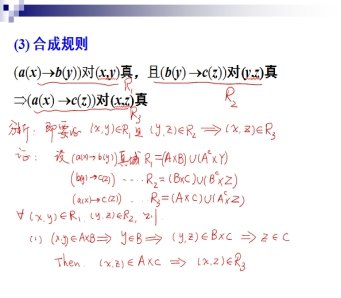 (3) 合成规则
(a(x)→b(y))对(x,y)真，且(b(y)→c(z))对(y,z)真
R₁ R₂
⇒(a(x)→c(z))对(x,z)真
R₃
分析：即要证 (x,y)∈R₁且 (y,z)∈R₂ ⇒ (x,z)∈R₃
证：设 (a(x)→b(y))真域 R₁=(A×B)∪(Aᶜ×Y)
(b(y)→c(z)) ‥‥ R₂=(B×C)∪(Bᶜ×Z)
(a(x)→c(z)) ‥‥ R₃=(A×C)∪(Aᶜ×Z)
∀ (x,y)∈R₁, (y,z)∈R₂,
(i) (x,y)∈A×B ⇒ y∈B ⇒ (y,z)∈B×C ⇒ z∈C
Then. (x,z)∈A×C ⇒ (x,z)∈R₃